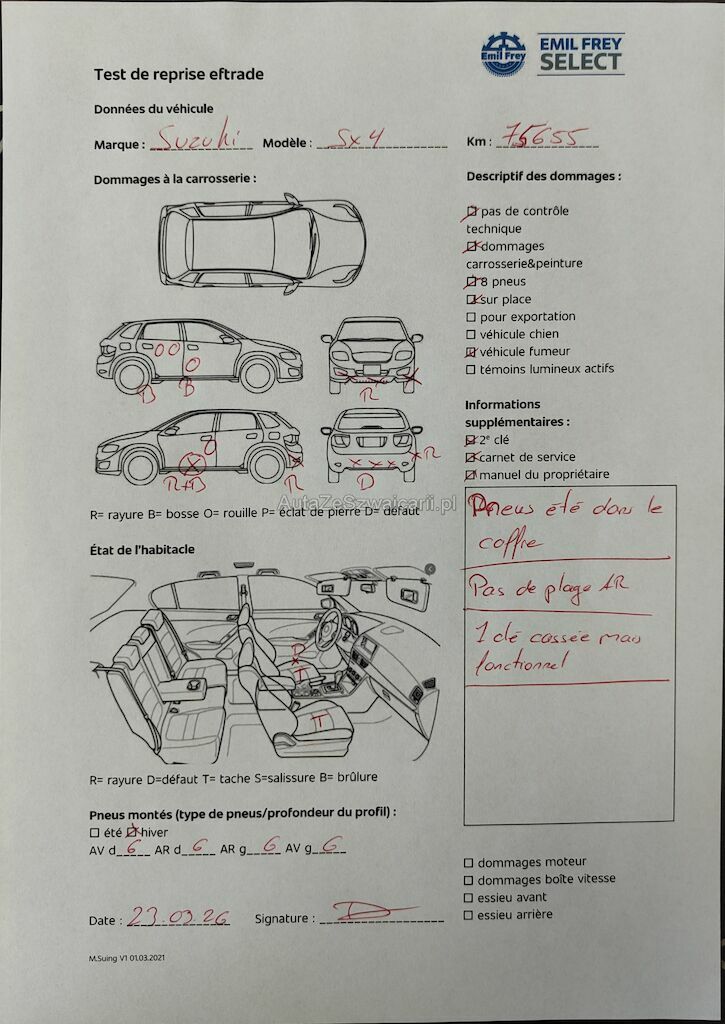 Emil Frey
EMIL FREY
SELECT
Test de reprise eftrade
Données du véhicule
Marque : Suzuki Modèle : Sx4 Km : 75655
Dommages à la carrosserie :
Descriptif des dommages :
pas de contrôle
technique
dommages
carrosserie&peinture
8 pneus
sur place
pour exportation
véhicule chien
véhicule fumeur
témoins lumineux actifs
O O
O
B B
R
O
R+B R
D
R
R= rayure B= bosse O= rouille P= éclat de pierre D= défaut
AutaZeSzwajcarii.pl
Informations
supplémentaires :
2e clé
carnet de service
manuel du propriétaire
Pneus été dans le
coffre
Pas de plage AR
1 clé cassée mais
fonctionnel
État de l'habitacle
D
T
T
R= rayure D=défaut T= tache S=salissure B= brûlure
Pneus montés (type de pneus/profondeur du profil) :
été hiver
AV d 6 AR d 6 AR g 6 AV g 6
dommages moteur
dommages boîte vitesse
essieu avant
essieu arrière
Date : 23.03.26 Signature :
M.Suing V1 01.03.2021